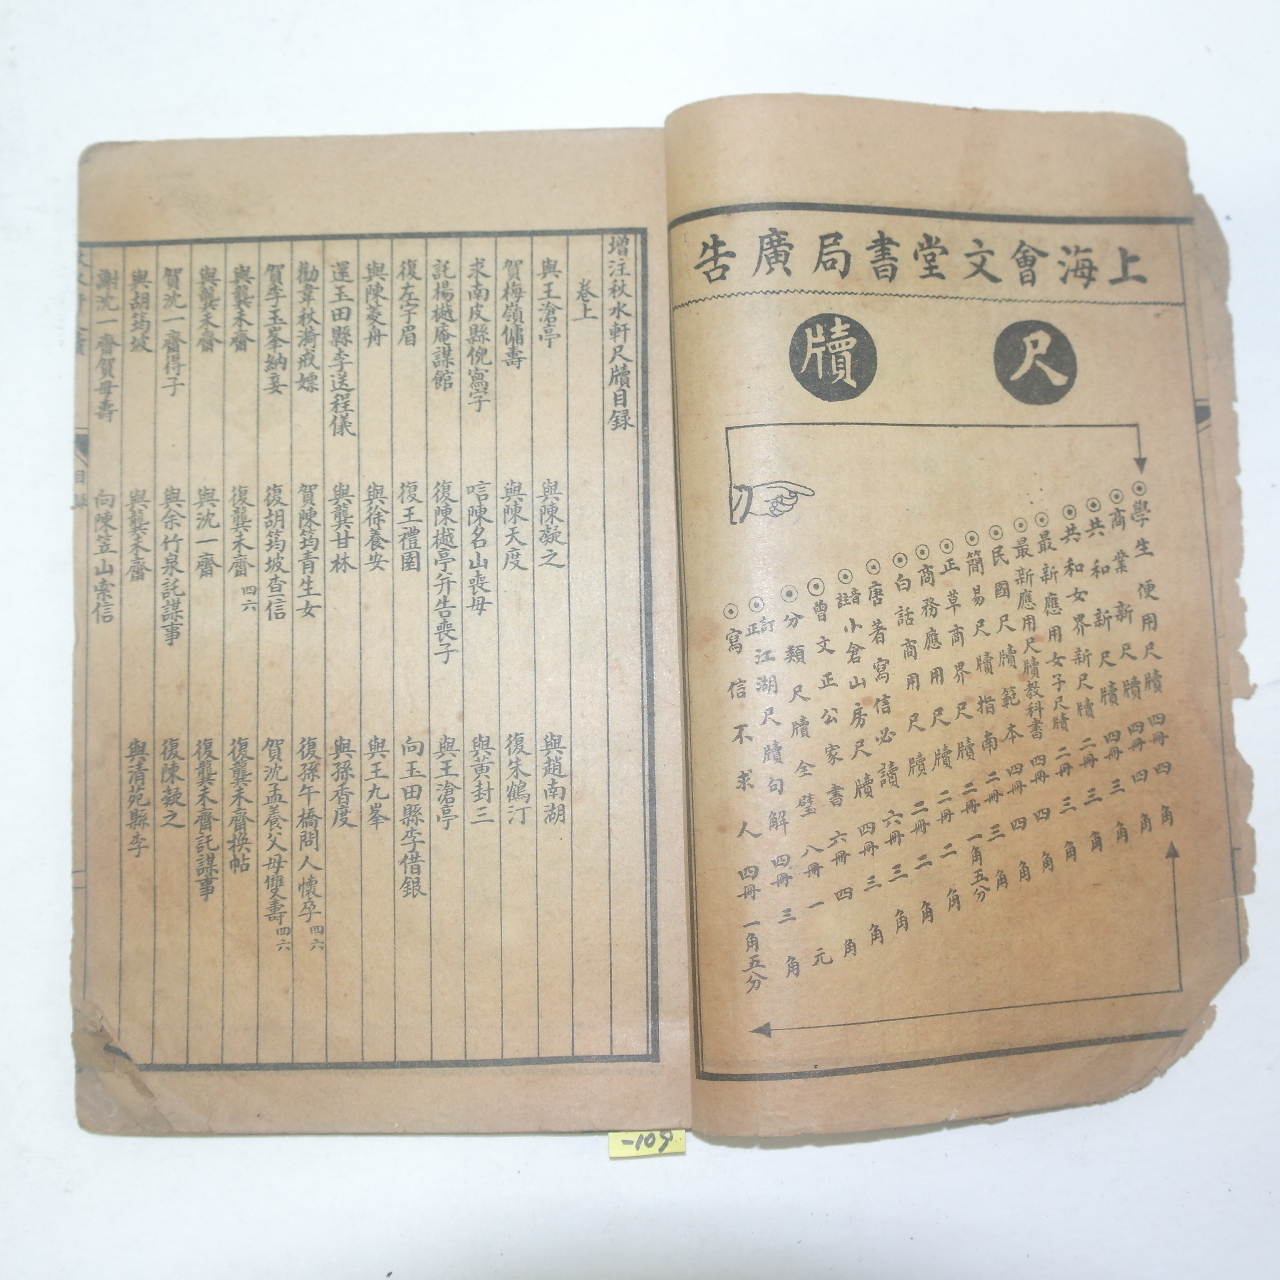 上海會文堂書局廣告
尺牘
學生便用尺牘 四冊 四角
商業新尺牘 四冊 四角
共和新尺牘 四冊 三角
共和女界新尺牘 二冊 三角
最新應用女子尺牘 二冊 三角
最新應用尺牘教科書 四冊 四角
民國尺牘範本 四冊 四角
簡易尺牘指南 二冊 三角
正草商界尺牘 二冊 一角五分
商務應用尺牘 二冊 二角
白話商用尺牘 二冊 二角
唐著寫信必讀 六冊 三角
音註小倉山房尺牘 四冊 三角
曾文正公家書 六冊 四角
分類尺牘全璧 八冊 一元
訂正江湖尺牘句解 四冊 三角
寫信不求人 四冊 一角五分
增注秋水軒尺牘目錄
卷上
與王滄亭 與陳凝之 與趙南湖
賀梅嶺傭壽 與陳天度 復朱鶴汀
求南皮縣倪寫字 唁陳名山喪母 與黃封三
託楊樾庵謀館 復陳樾亭并告喪子 與王滄亭
復左字眉 復王禮圃 向玉田縣李借銀
與陳菱舟 與徐養安 與王九峯
還玉田縣李送程儀 與龔甘林 與孫香度
勸韋秋漪戒嫖 賀陳筠青生女 復孫午橋問人懷孕 四六
賀李玉峯納妾 復胡筠坡查信 賀沈孟養父母雙壽 四六
與龔未齋 復龔未齋 四六 復龔未齋換帖
與龔未齋 與沈一齋 復龔未齋託謀事
賀沈一齋得子 與余竹泉託謀事 復陳凝之
與胡筠坡 與龔未齋 與清苑縣李
謝沈一齋賀母壽 向陳笠山索信
目錄
一
-109